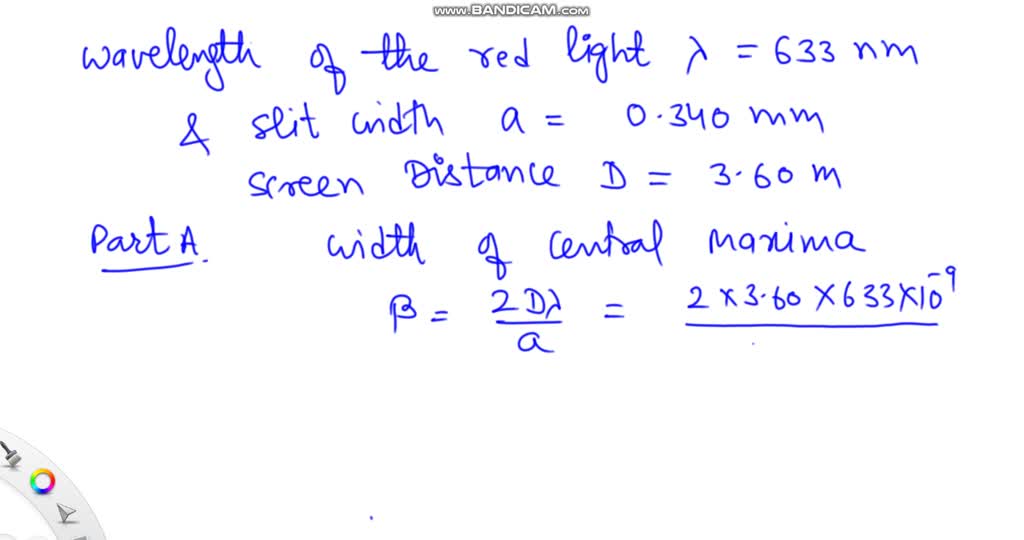 www.BANDICAM.com
wavelength of the red light λ = 633 nm
& slit width a = 0.340 mm
screen Distance D = 3.60 m
Part A. width of central maxima
β = 2Dλ/a = 2 × 3.60 × 633 × 10⁻⁹